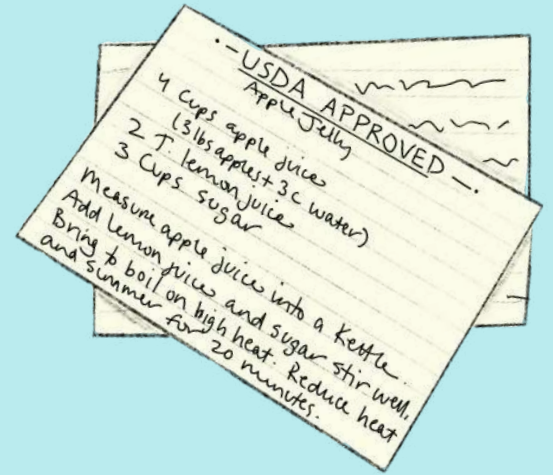 ·-USDA APPROVED-·
Apple Jelly
4 Cups apple juice
(3 lbs apples + 3 c water)
2 T. lemon juice
3 Cups sugar
Measure apple juice into a Kettle.
Add lemon juice and sugar stir well.
Bring to boil on high heat. Reduce heat
and summer for 20 minutes.